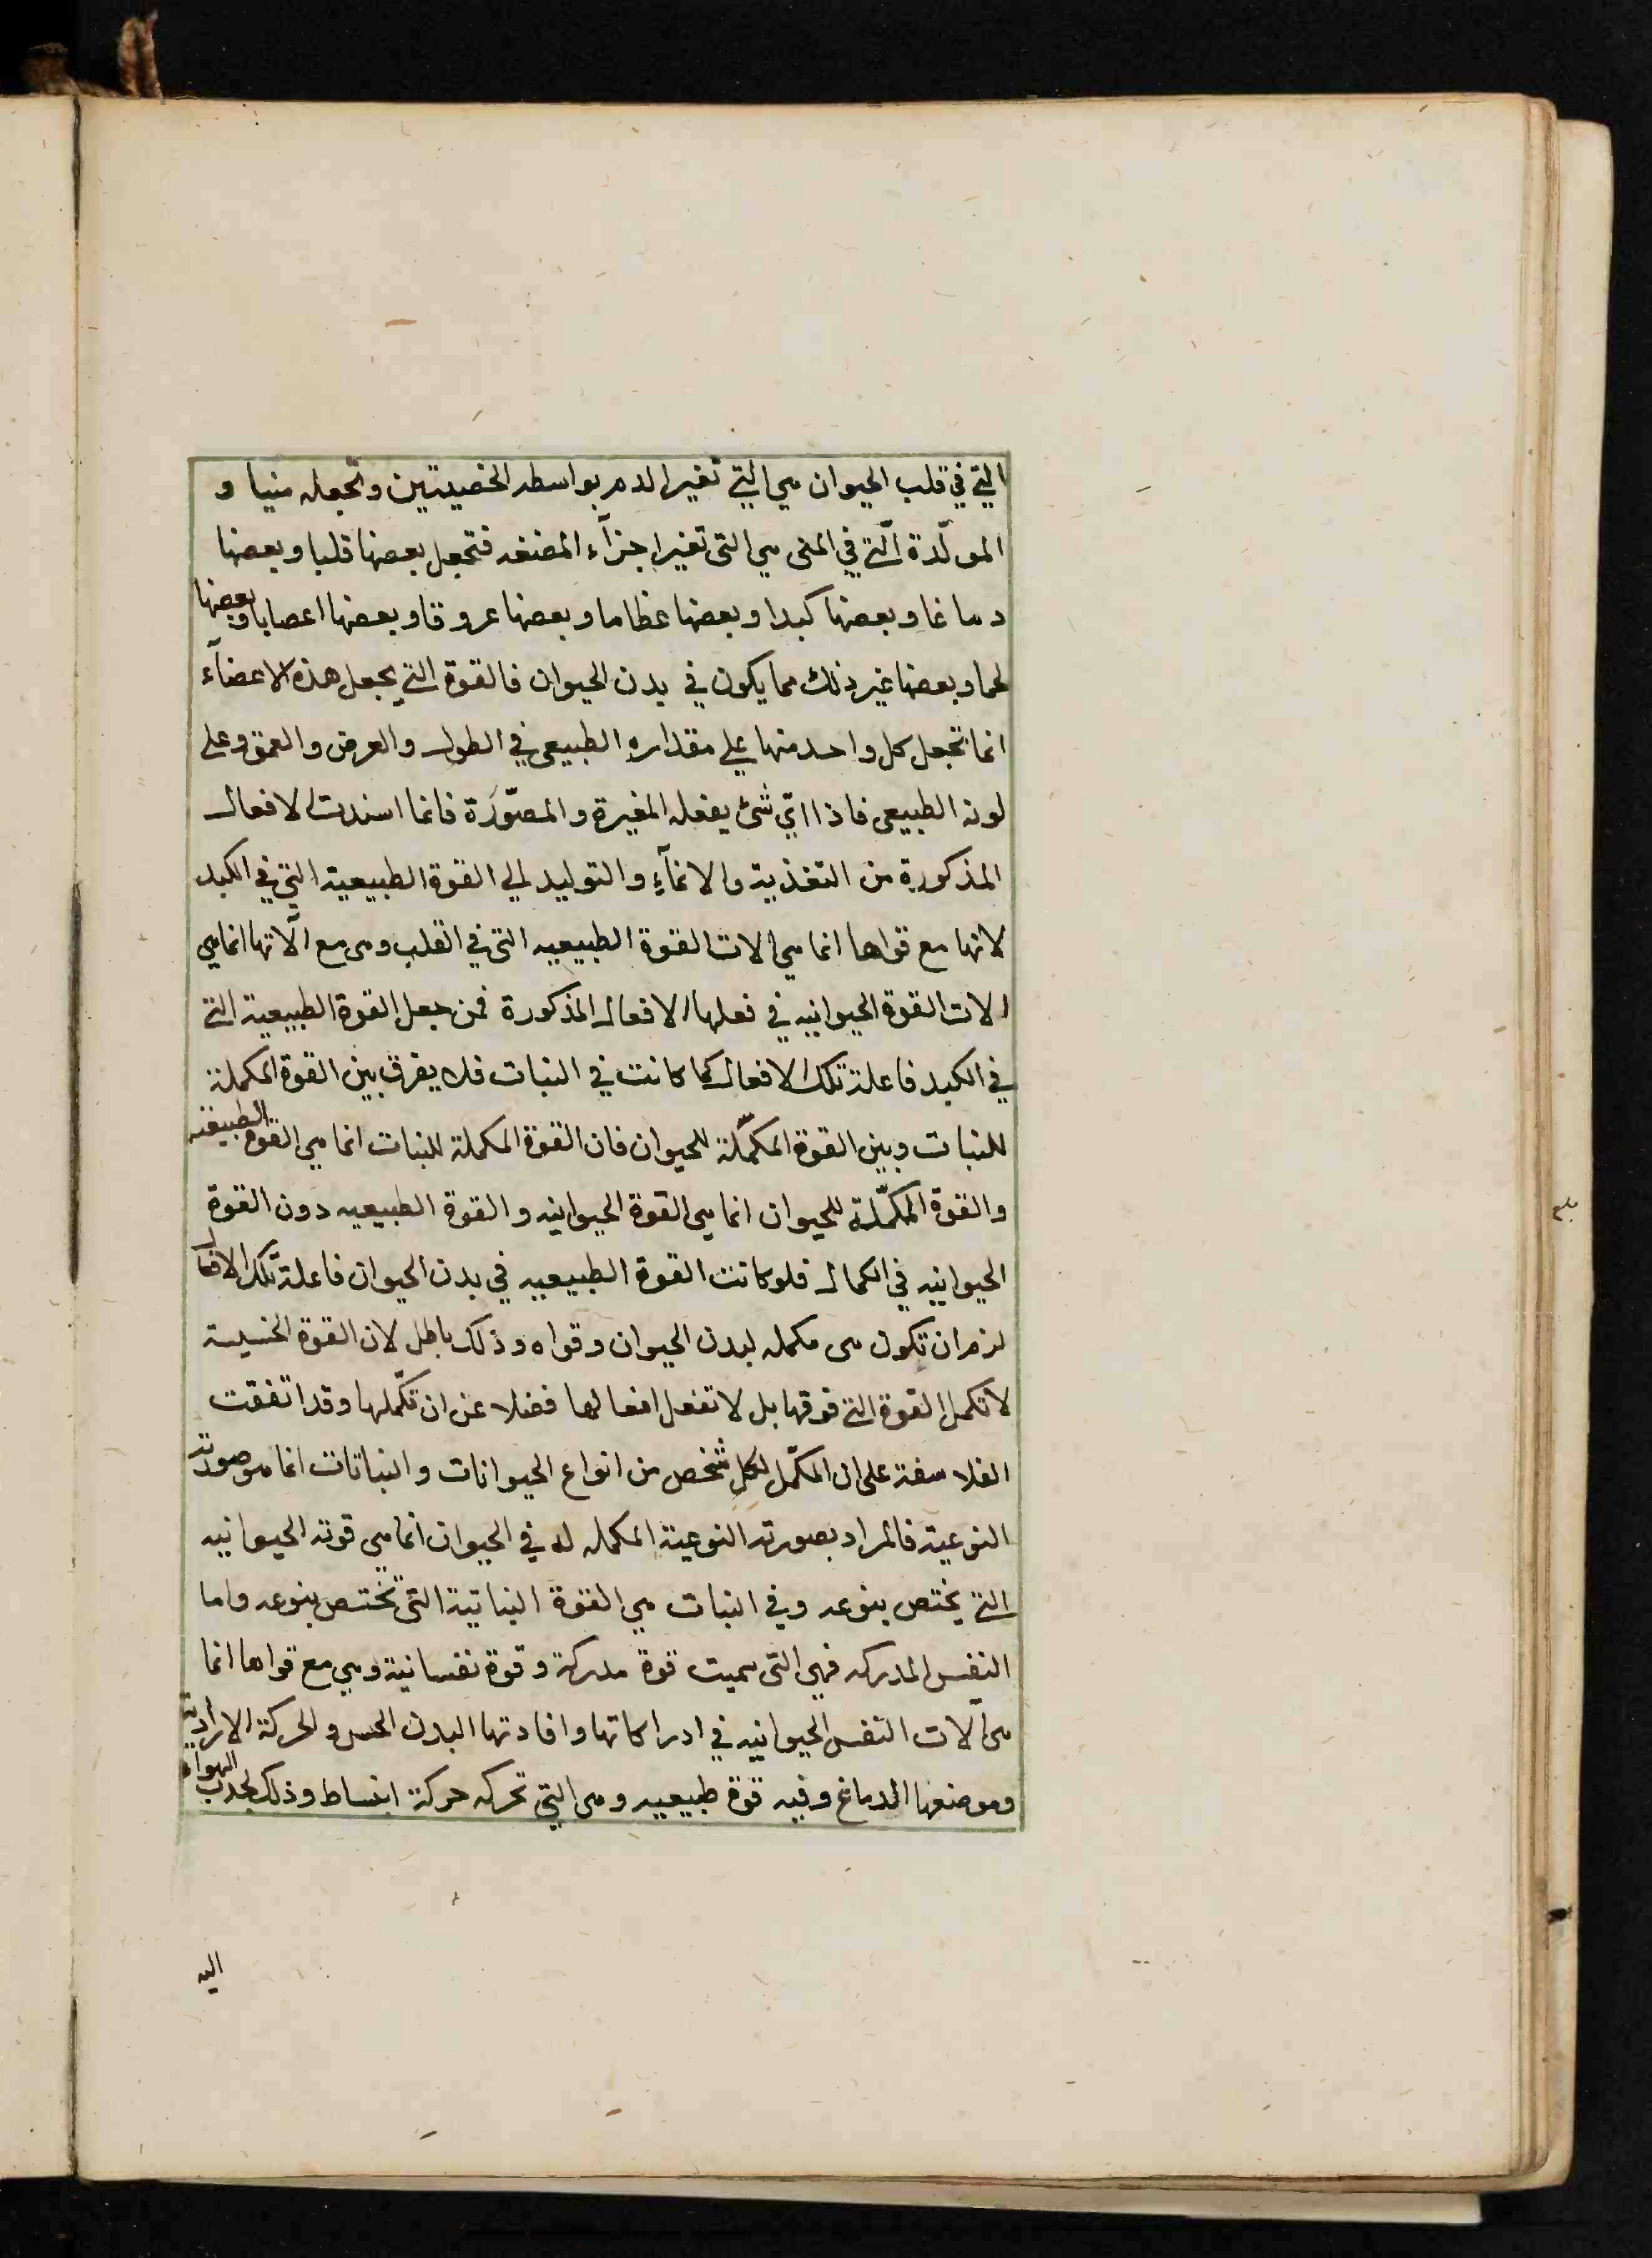 التي في قلب الحيوان هي التي تغير الدم بواسطه الخصيتين وتجعله منيا و
المولّدة الّتي في المنى هي التى تغير اجزآء المضغه فتجعل بعضها قلبا وبعضها
دماغا وبعضها كبدا وبعضها عظاما وبعضها عروقا وبعضها اعصابا وبعضها
لحما وبعضها غير ذلك مما يكون في بدن الحيوان فالقوة التي يجعل هذه الاعضآء
انما تجعل كل واحد منها علي مقداره الطبيعى في الطول والعرض والعمق وعلى
لونه الطبيعى فاذا اىّ شئ يفعله المغيرة والمصّورَة فانما اسندت الافعال
المذكورة من التغذية والانمآءِ والتوليد الي القوة الطبيعية التي في الكبد
لانها مع قواها انما هي الات القوة الطبيعيه التى في القلب وهى مع الآتها انما هي
الات القوة الحيوانيه في فعلها الافعال المذكورة فمن جعل القوة الطبيعية التي
في الكبد فاعلة تلك الافعال كما كانت في النبات فلا يفرق بين القوة المكملة
للنبات وبين القوة المكمّلة للحيوان فان القوة المكملة للنبات انما هي القوة الطبيعيه
والقوة المكمّلة للحيوان انما هي القوة الحيوانيه والقوة الطبيعيه دون القوة
الحيوانيه في الكمال فلو كانت القوة الطبيعيه في بدن الحيوان فاعلة تلك الافعال
لزم ان تكون هى مكمله لبدن الحيوان وقواه وذلك باطل لان القوة الخسيسة
لا تكمل القوة التي فوقها بل لا تفعل افعالها فضلا عن ان تكّملها وقد اتفقت
الفلاسفة على ان المكمّل لكل شخص من انواع الحيوانات والنباتات انما هو صورته
النوعية فالمراد بصورته النوعية المكمله له في الحيوان انما هي قوته الحيوانيه
التي يختص بنوعه وفي النبات هي القوة النباتية التى تختص بنوعه واما
النفس المدركه فهى التى سميت قوة مدركة وقوة نفسانية وهي مع قواها انما
هى آلات النفس الحيوانيه في ادراكاتها وافادتها البدن الحس والحركة الارادية
وموضعها الدماغ وفيه قوة طبيعيه وهى التي تحركه حركة انبساط وذلك لجذب الهواء
اليه